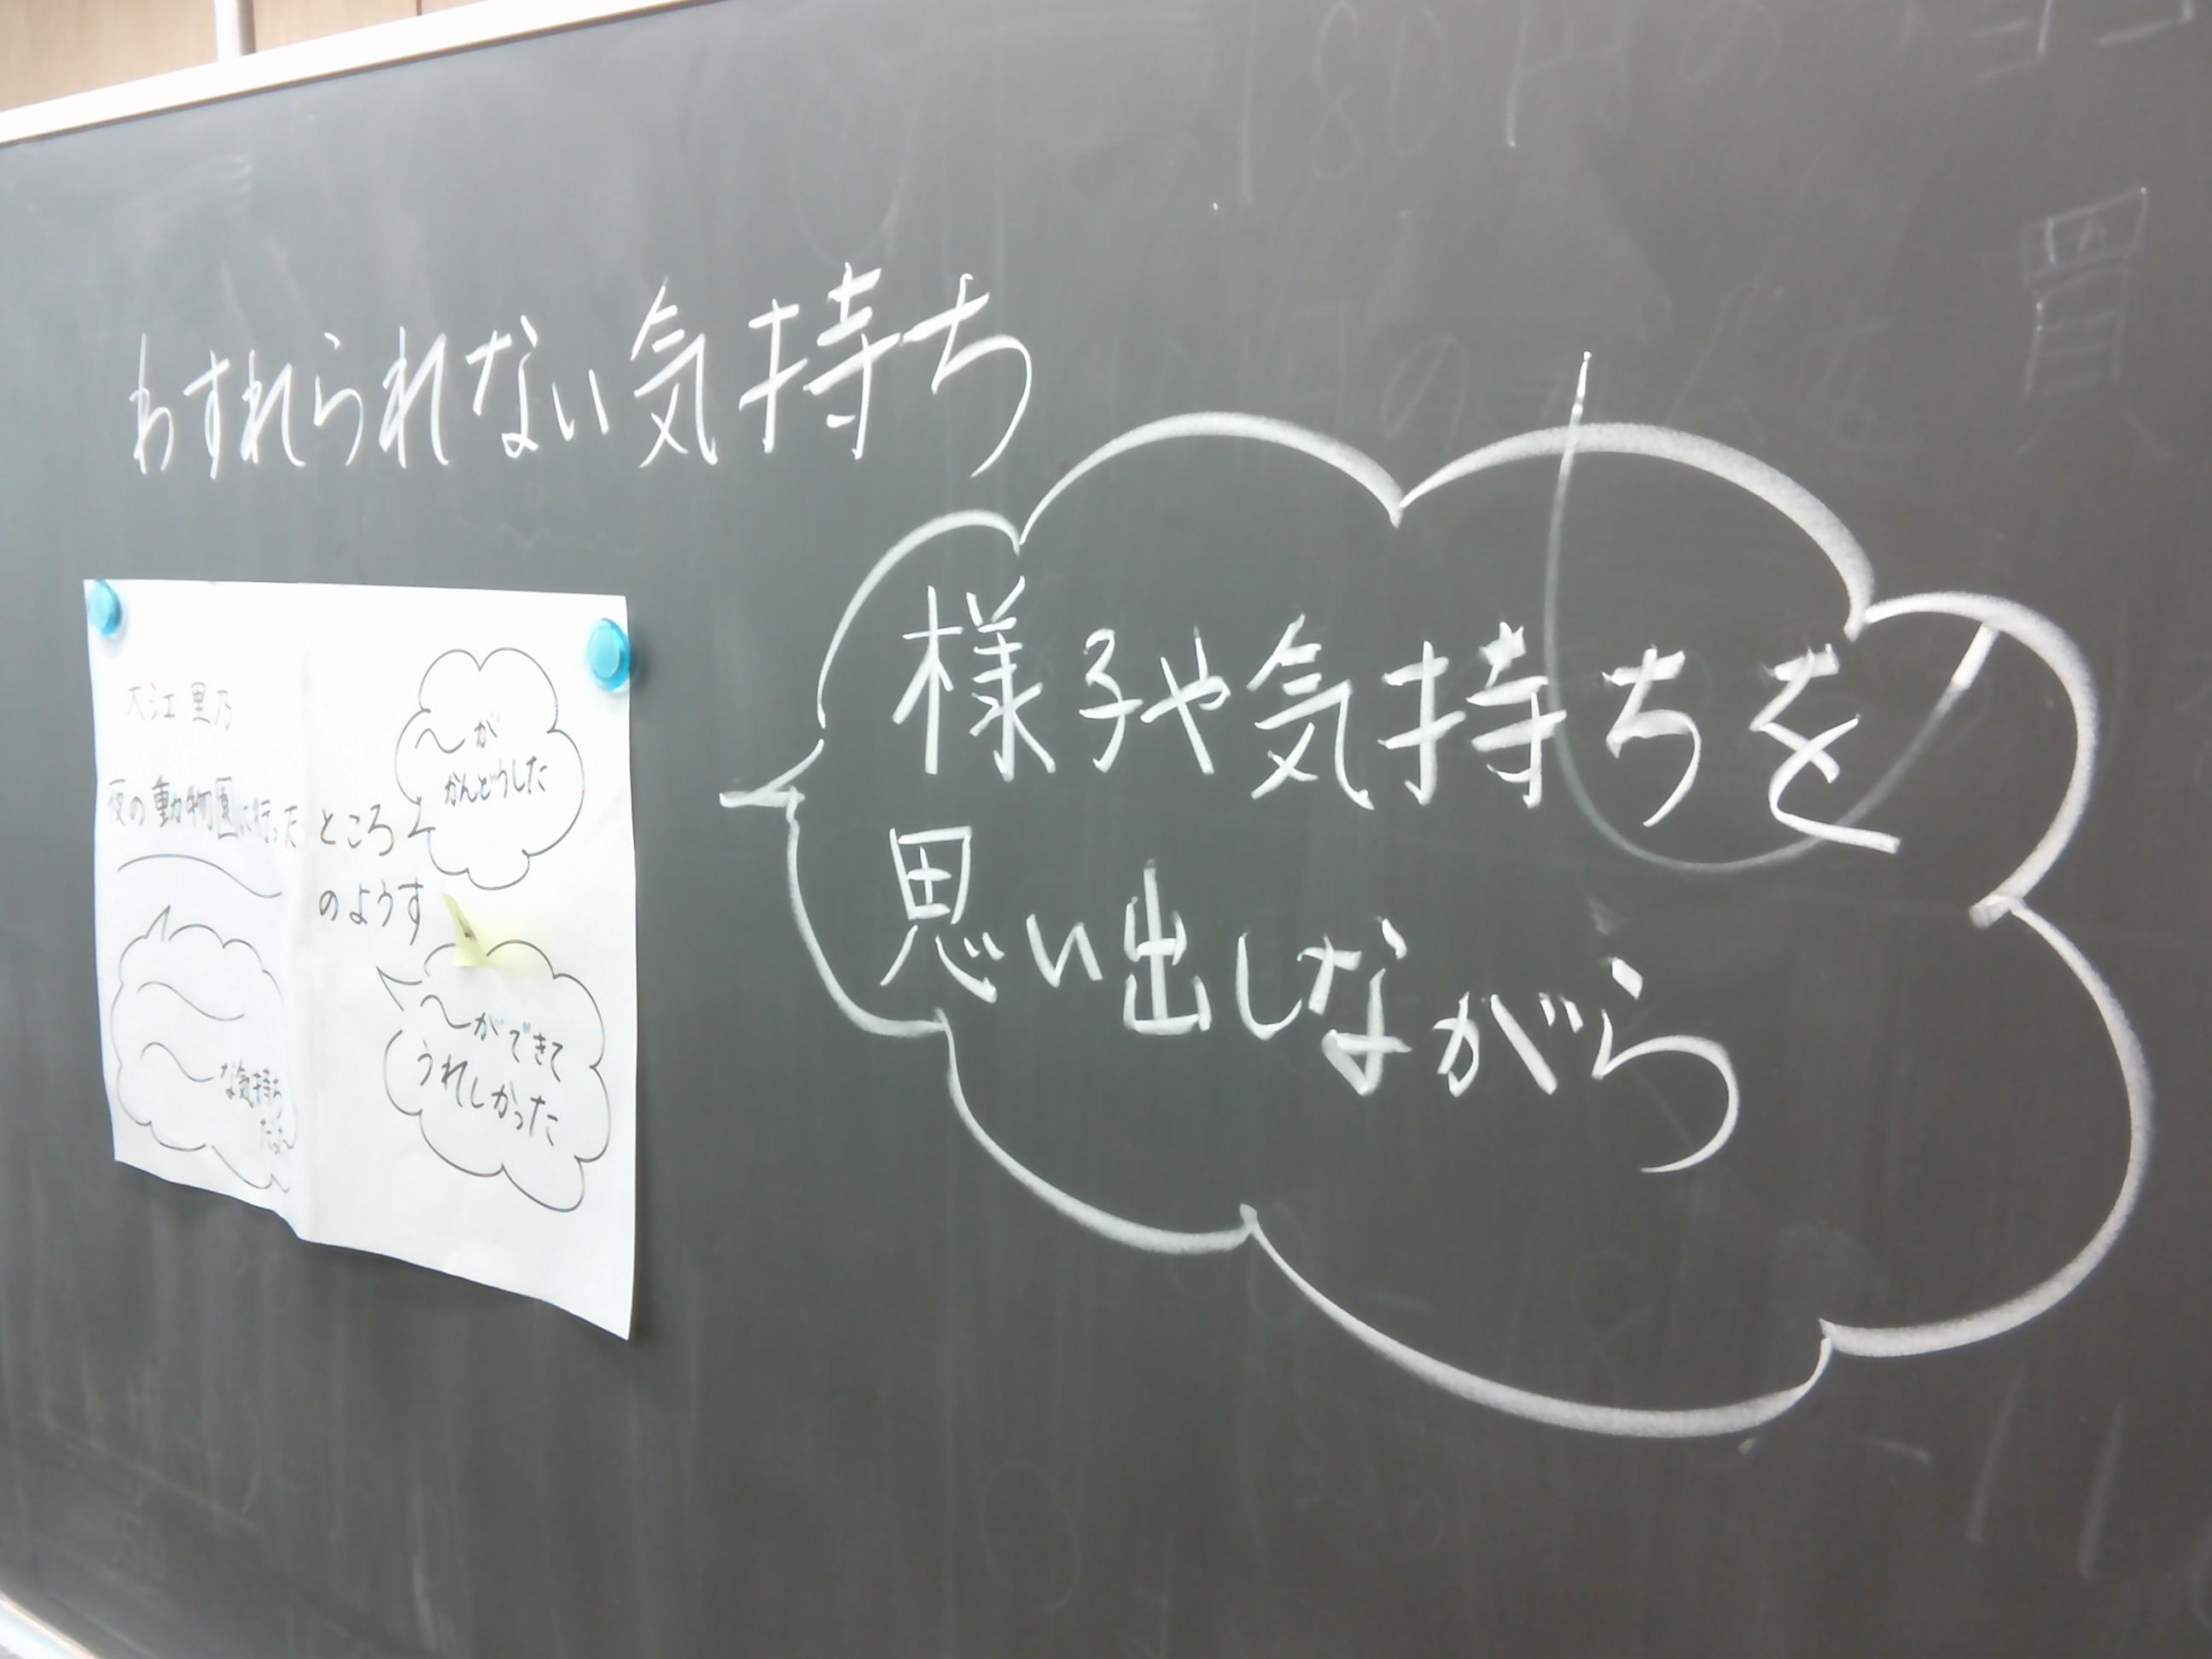 わすれられない気持ち
様子や気持ちを
思い出しながら
大江里乃
夜の動物園に行った
ところ
のようす
〜が
かんどうした
〜ができて
うれしかった
な気持ち
だった